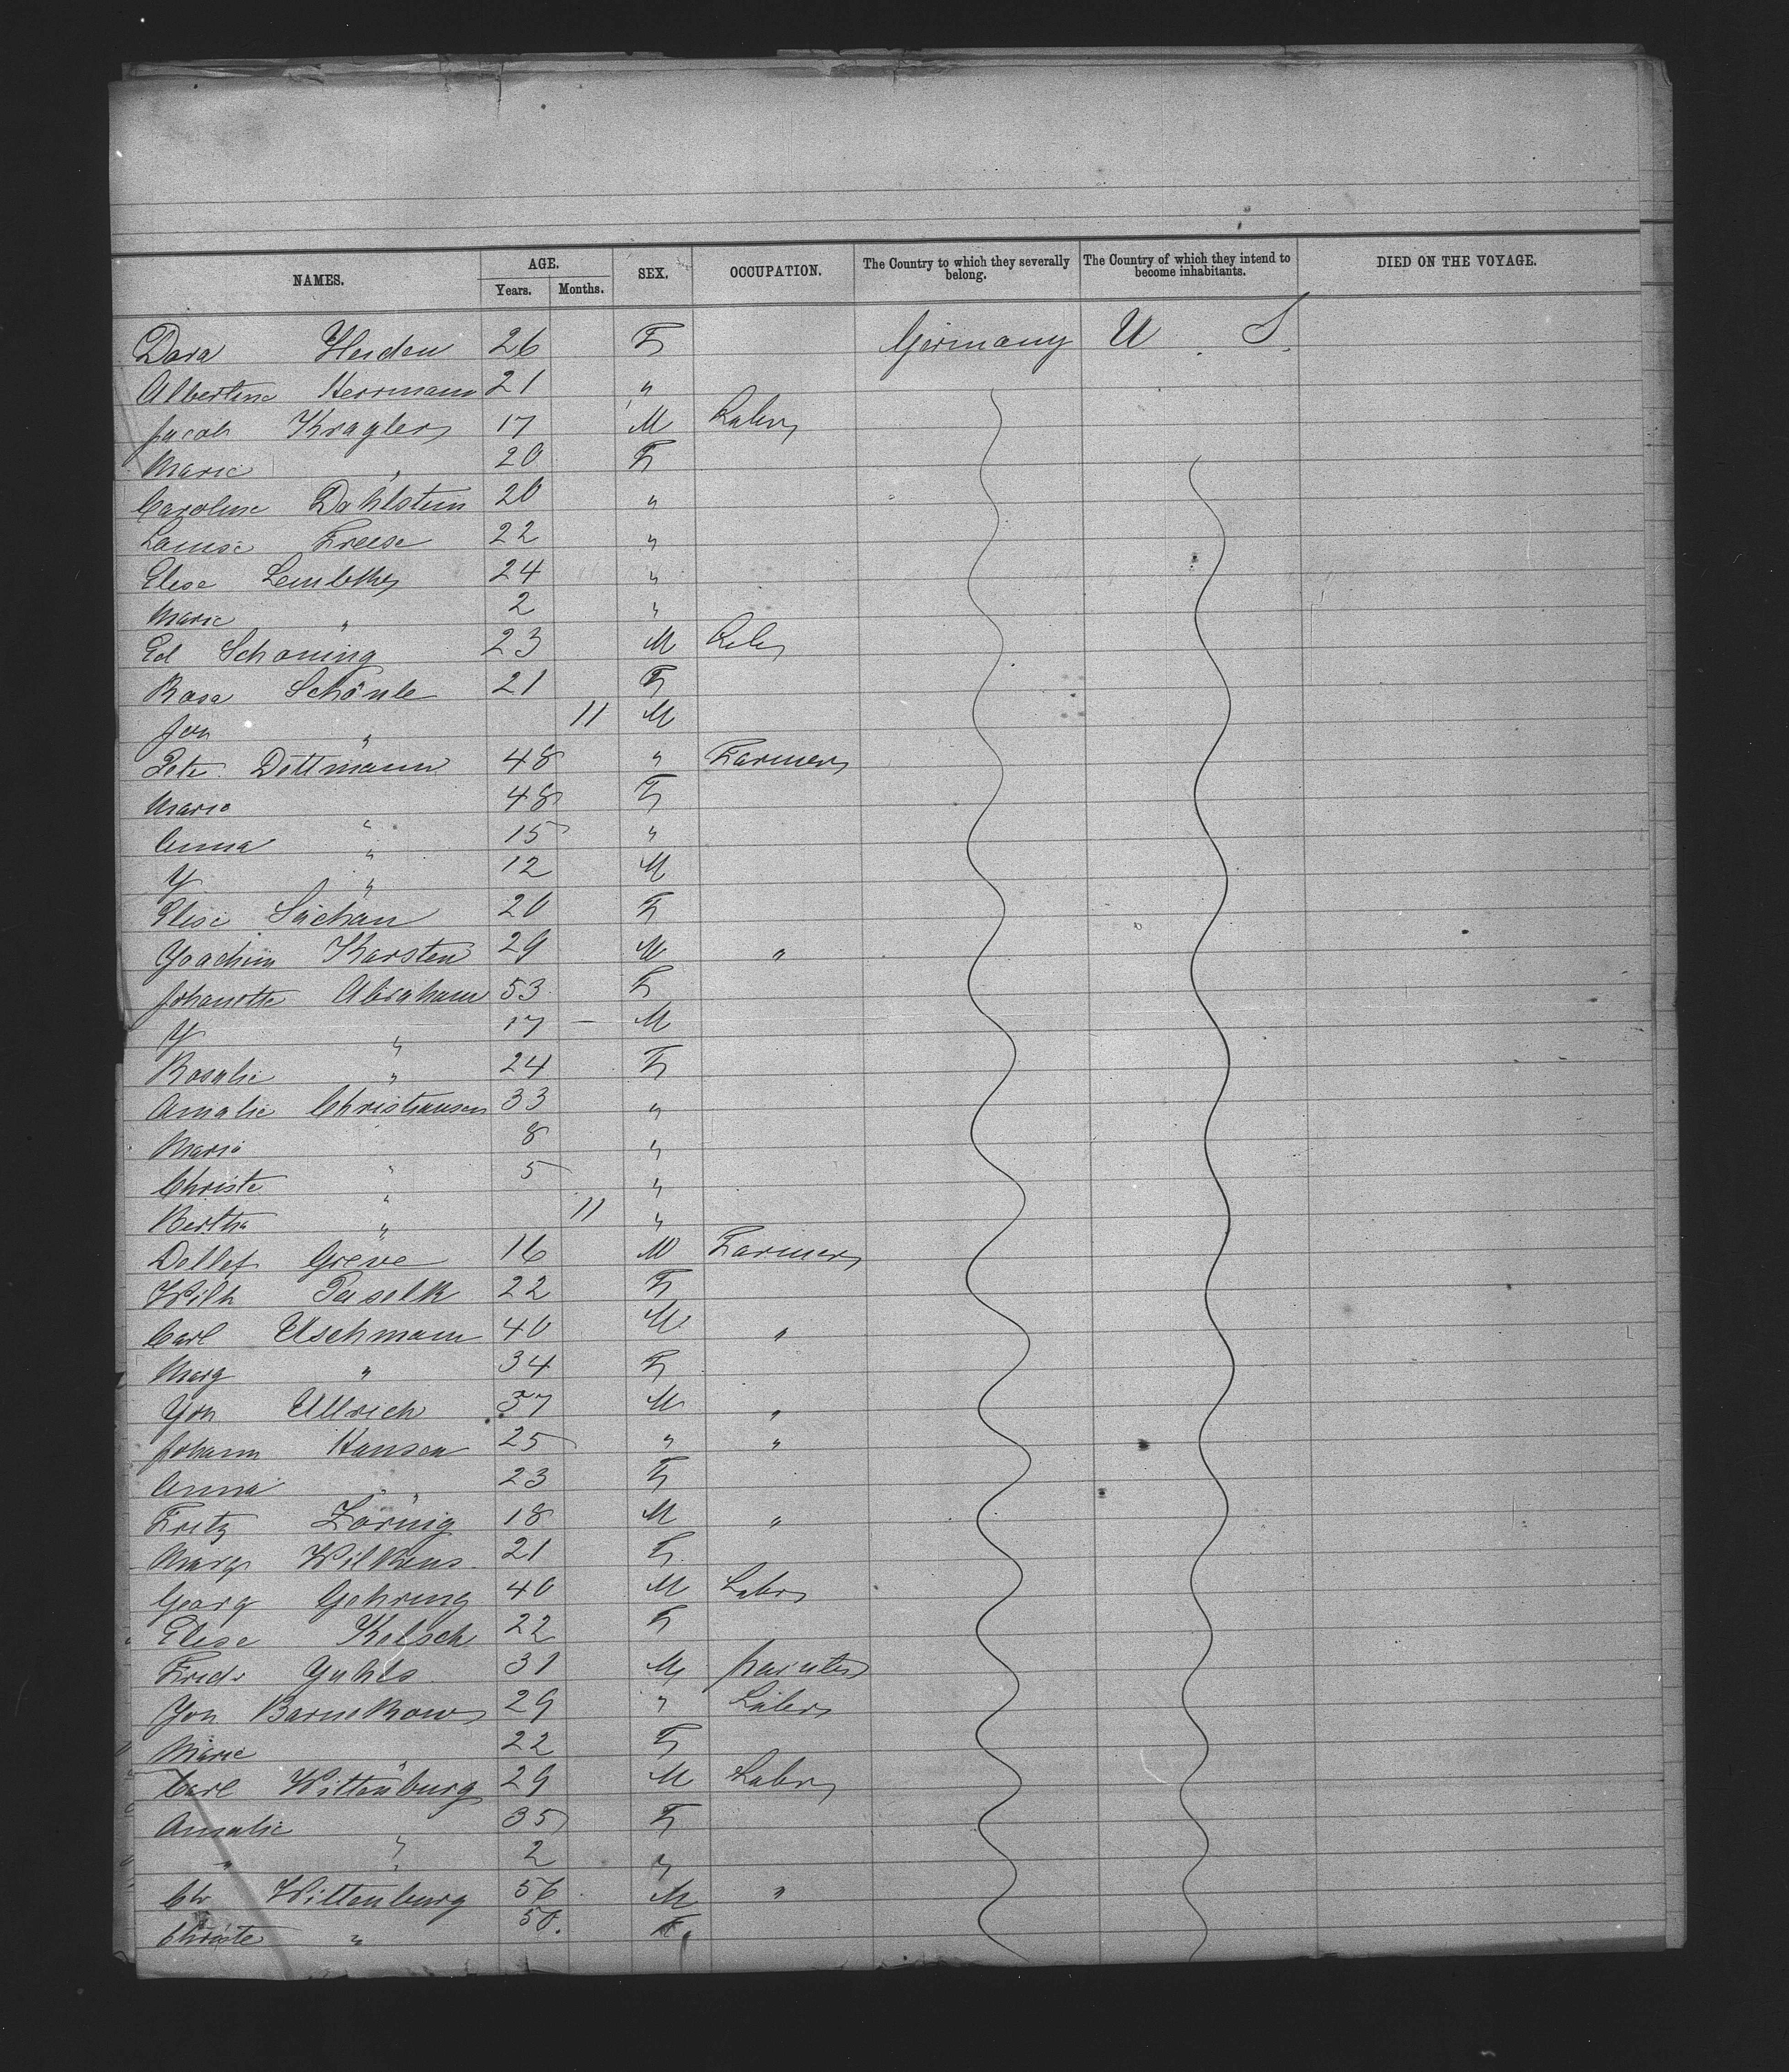 NAMES. AGE. SEX. OCCUPATION. The Country to which they severally belong. The Country of which they intend to become inhabitants. DIED ON THE VOYAGE.
Years. Months.
Dora Heiden 26 F Germany U. S.
Albertine Herrmann 21 "
Jacob Kragler 17 M Labr
Marie " 20 F
Caroline Dahlstein 20 "
Louise Freese 22 "
Elise Lembke 24 "
Marie " 2 "
Ed Schoning 23 M Labr
Rosa Schönle 21 F
Joh " 11 M
Pet. Dettmann 48 " Farmer
Marie " 48 F
Anna " 15 "
J " 12 M
Elise Suchan 20 F
Joachim Karsten 29 M "
Johanette Abraham 53 F
J " 17 — M
Rosalie " 24 F
Amalie Christiansen 33 "
Maria " 8 "
Christe " 5 "
Bertha " 11 "
Detlef Greve 16 M Farmer
Wilh Paselk 22 F
Carl Uschmann 40 M "
Marg " 34 F
Joh Ullrich 37 M "
Johann Hansen 25 " "
Anna " 23 F
Fritz Zörnig 18 M "
Marg Wilkens 21 F
Georg Gehring 40 M Labr
Elise Kolsch 22 F
Fredr Juhls 31 M painter
Joh Barnekow 29 " Labr
Marie " 22 F
Carl Wittenburg 29 M Labr
Amalie " 35 F
" " 2 "
Ch Wittenburg 56 M "
Christe " 50. F.